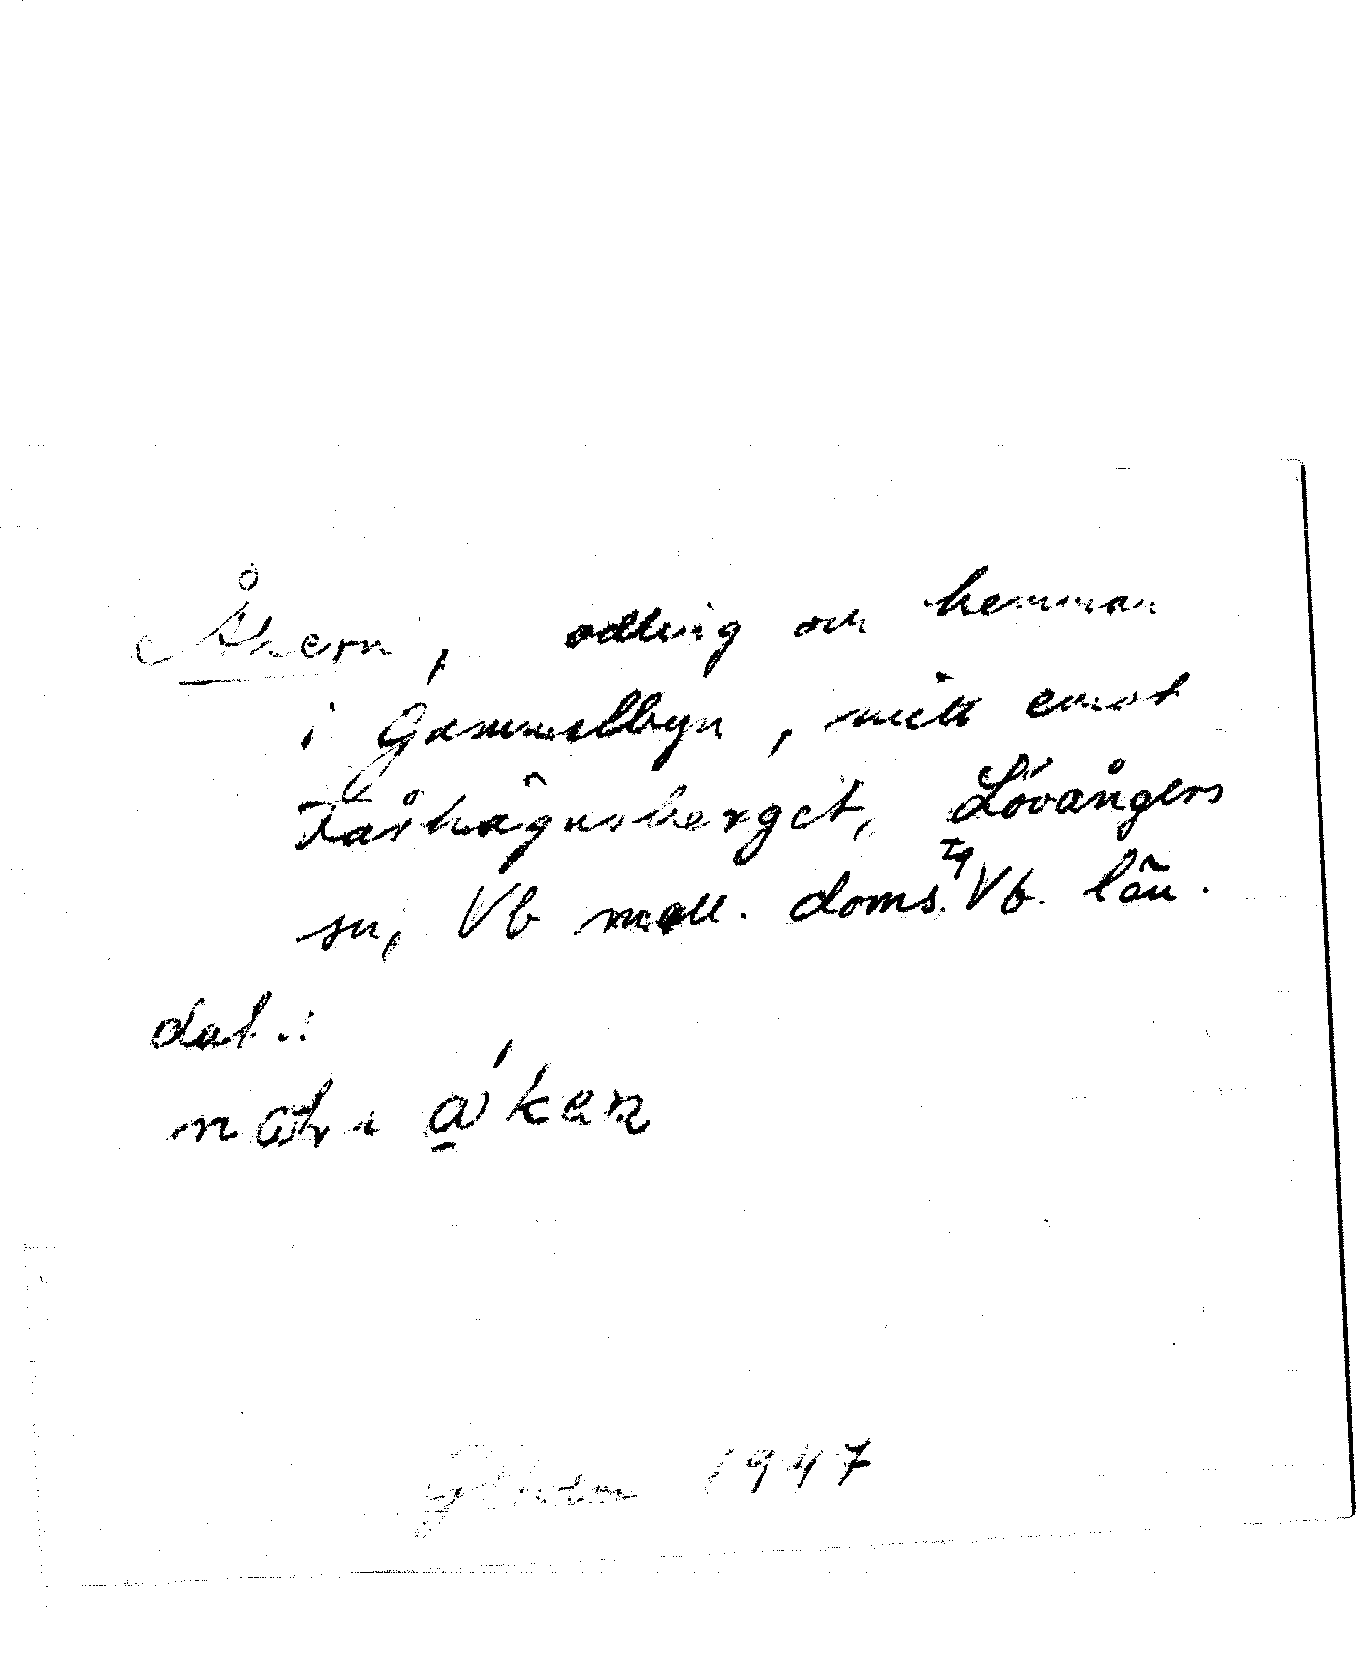 Åkern, odling och hemman
i Gammelbyn, mitt emot
Fårhägnsberget, Lövångers
sn, Vb mell. doms. Vb. län.
dat.:
åkex
1947